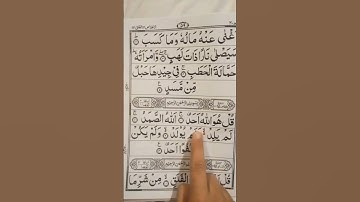 اَغْنٰى عَنْهُ مَالُهٗ وَمَا كَسَبَ
سَيَصْلٰى نَارًا ذَاتَ لَهَبٍ وَّامْرَاَتُهٗ
حَمَّالَةَ الْحَطَبِ فِيْ جِيْدِهَا حَبْلٌ
مِّنْ مَّسَدٍ
قُلْ هُوَ اللّٰهُ اَحَدٌ اَللّٰهُ الصَّمَدُ
لَمْ يَلِدْ وَلَمْ يُوْلَدْ وَلَمْ يَكُنْ
كُفُوًا اَحَدٌ
قُلْ الْفَلَقِ مِنْ شَرِّ مَا